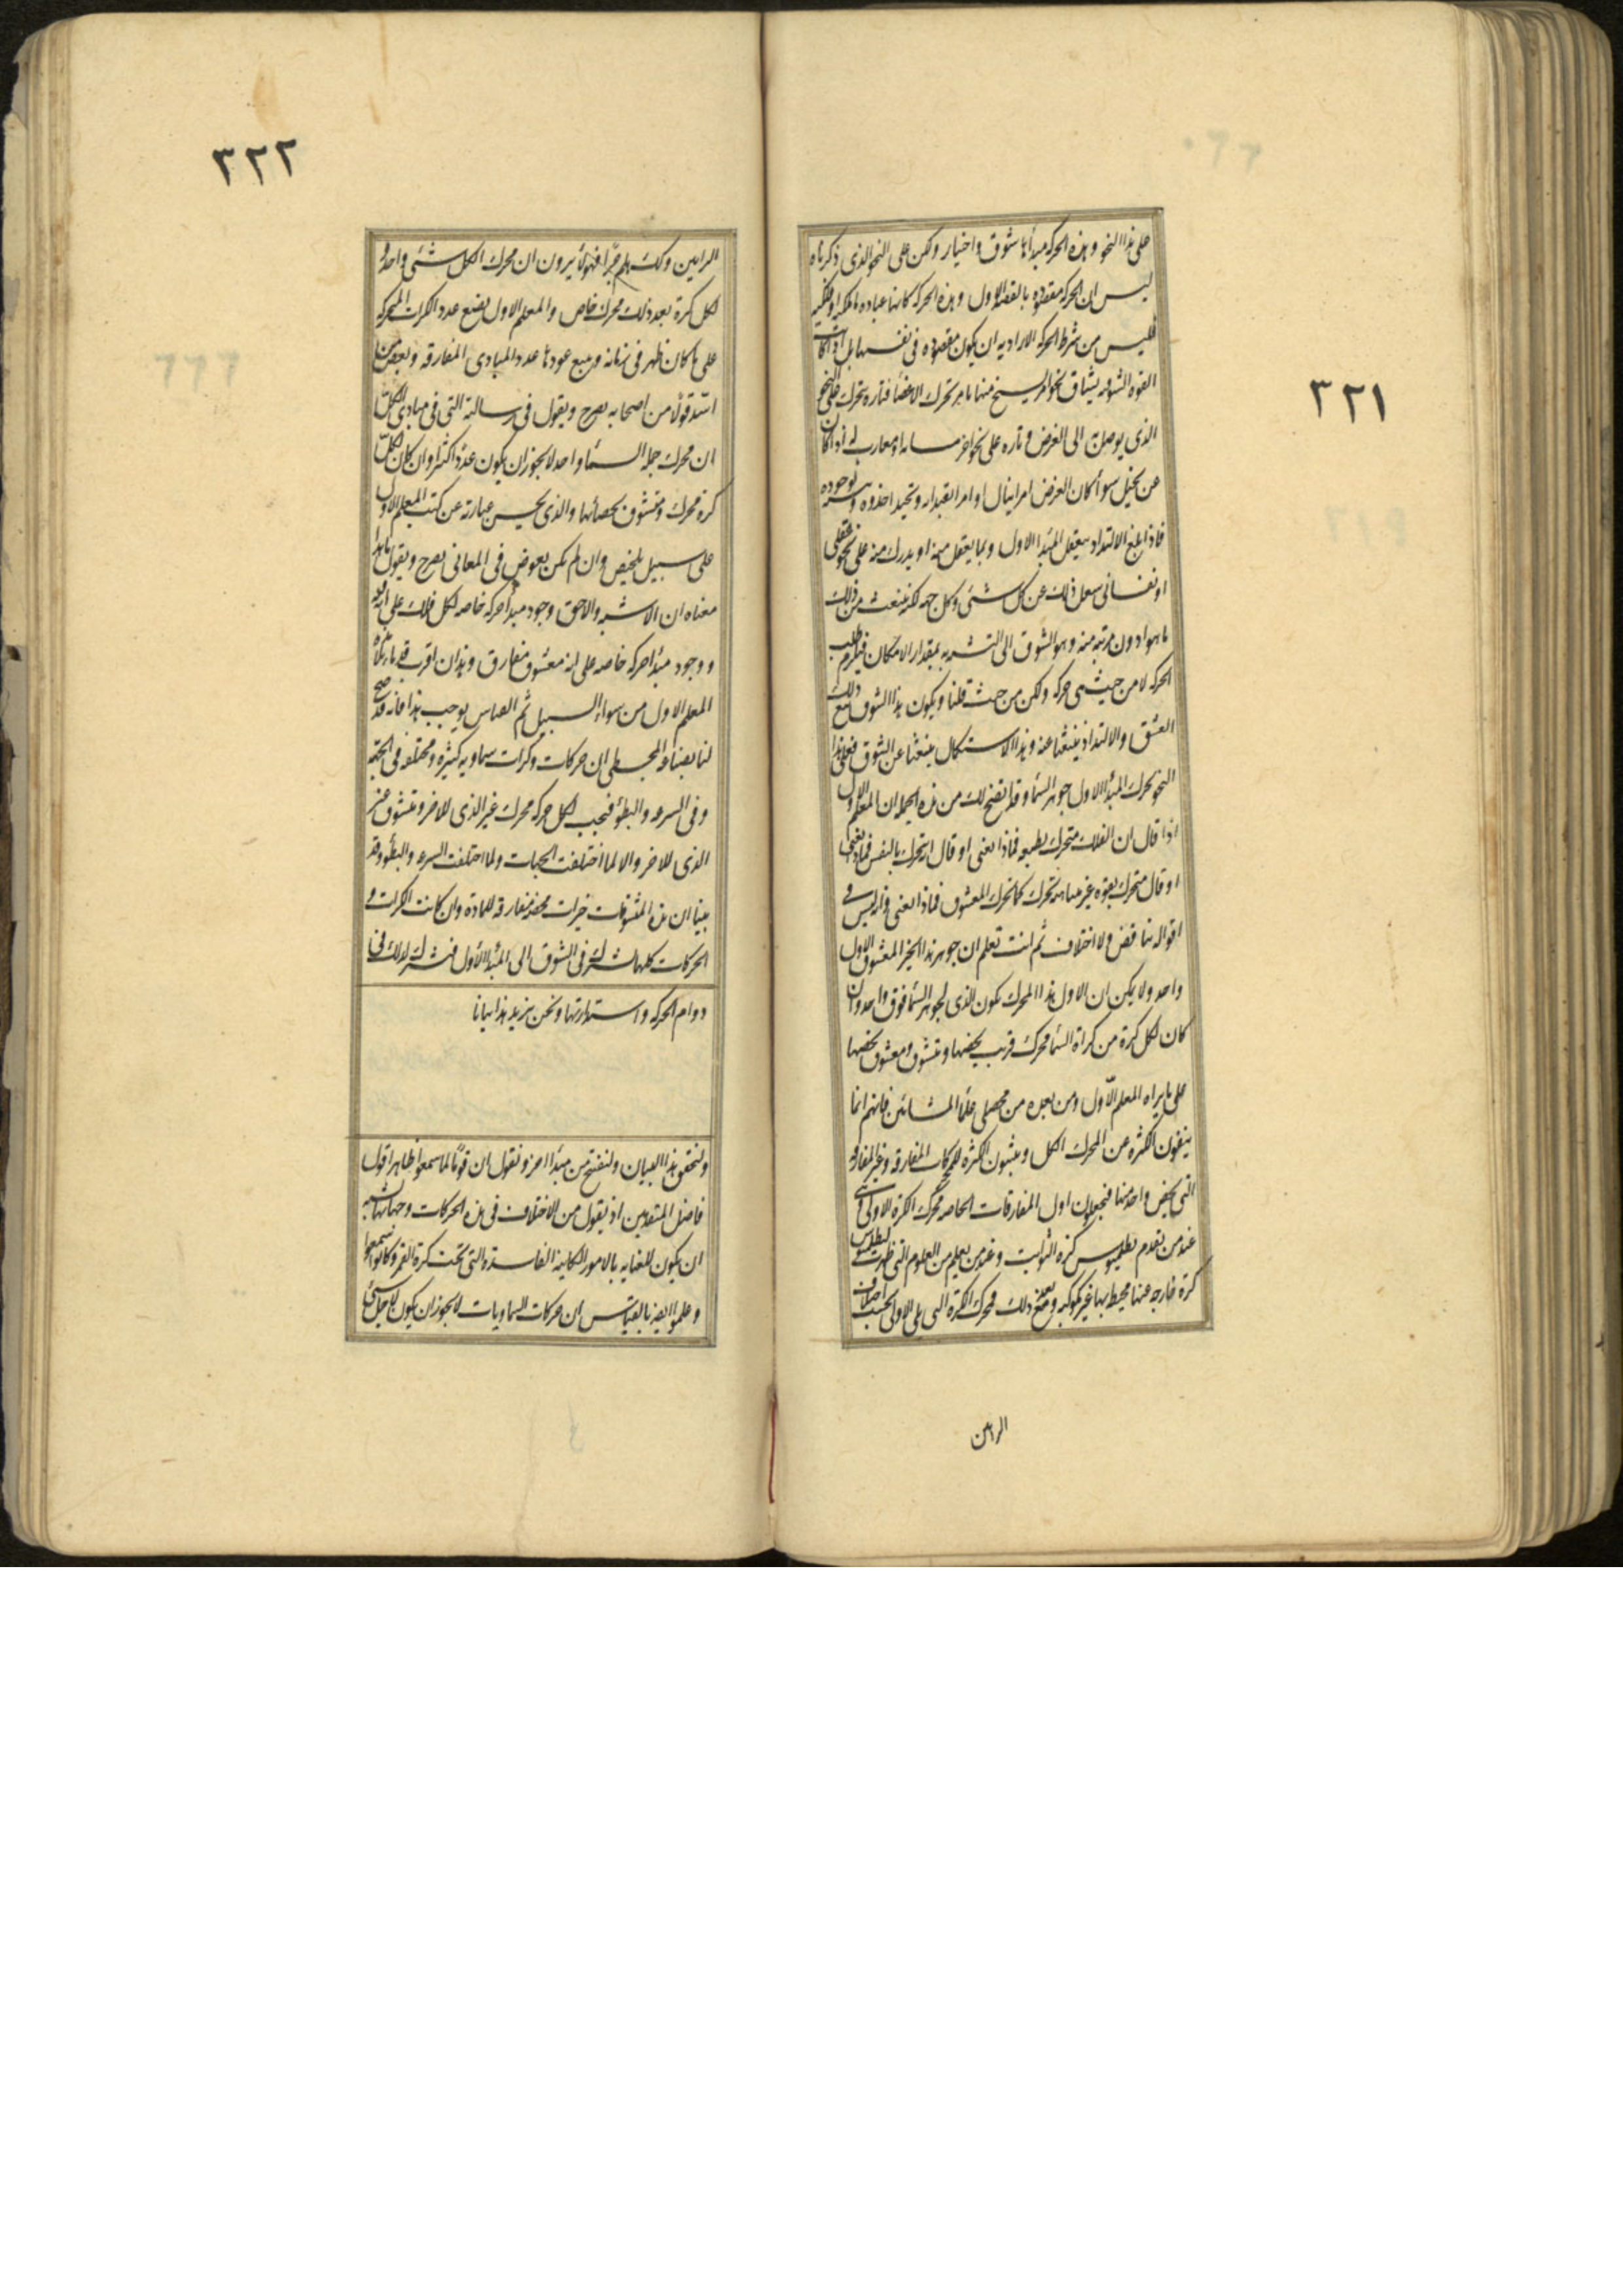 ٣٢١
على هذا النحو وهذه الحركة مبدأها شوق واختيار ولكن على النحو الذى ذكرناه
ليس ان الحركة مقصوده بالقصد الاول وهذه الحركة كانها عباده ملكيه او فلكيه
فليس من شرط الحركة الاراديه ان يكون مقصوده فى نفسها بل اذا كانت
القوه الشوقيه يشتاق نحو امر يسنح منها تاثير تحرك الاعضا فتاره يتحرك على النحو
الذى يوصل به الى الغرض وتاره على نحو اخر مشابه او مقارب له اذا كان
عن تخيل سوأ كان الغرض امرا ينال او امرا يقتدا به ويحتذا حذوه
فاذا بلغ الالتذاذ بتعقل المبدا الاول وبما يعقل منه او يدرك منه على نحو عقلى
او نفسانى شغل ذلك عن كل شئى وكل جهه لكنه ينبعث من ذلك
ما هو ادون مرتبه منه وهو الشوق الى التشبه به بمقدار الامكان فيلزم طلب
الحركه لا من حيث هى حركه ولكن من حيث قلنا ويكون هذا الشوق تبع ذلك
العشق والالتذاذ منبعثا عنه وهذا الاستكمال منبعثا عن الشوق فعلى هذا
النحو يحرك المبدأ الاول جوهر السما وقد اتضح لك من هذه الجمله ان المعلم الاول
اذا قال ان الفلك متحرك بطبعه فماذا يعنى او قال انه متحرك بالنفس فماذا يعنى
او قال متحرك بقوه غير متناهيه تحرك كما يحرك المعشوق فماذا يعنى وانه ليس فى
اقواله تناقض ولا اختلاف ثم انت تعلم ان جوهر هذا الخير المعشوق الاول
واحد ولا يمكن ان الاول هذا المحرك يكون الذى لجوهر السما فوق واحد وان
كان لكل كرة من كراة السما محرك قريب يخصها ومتشوق ومعشوق يخصها
على ما يراه المعلم الاول ومن بعده من محصلى علما المشائين فانهم انما
ينفون الكثره عن المحرك الكل ويثبتون الكثره للمحركات المفارقه وغير المفارقه
التى يخص واحد منها فيجعلون اول المفارقات الخاصه محرك الكرة الاولى وهى
عند من تقدم بطليموس كره الثوابت وعند من يعلم من العلوم التى ظهرت لبطلميوس
كرة خارجه عنها محيط بها غير مكوكبه وبعد ذلك محرك الكره التى تلى الاولى بحسب اختلاف
الراين
٣٢٢
الرايين وكذلك هلم جرّا فهولأ يرون ان محرك الكل شئى واحد و
لكل كرة بعد ذلك محرك خاص والمعلم الاول يضع عدد الكرات المتحركه
على ما كان ظهر فى زمانه ويتبع عددها عدد المبادى المفارقه وبعض من
اسّد قولا من اصحابه يصرح ويقول فى رسالته التى فى مبادى الكل
ان محرك جمله السمأ واحد لا يجوز ان يكون عددا كثيرا وان كان لكل
كرة محرك ومتشوق يخصانها والذى يحسن عبارته عن كتب المعلم الاول
على سبيل تلخيص وان لم يكن يغوص فى المعانى يصرح ويقول ما هذا
معناه ان الاشبه والاحق وجود مبدأ حركه خاصه لكل فلك على انه فيه
ووجود مبدأ حركه خاصه على انه معشوق مفارق وهذان اقرب قدما تلامذة
المعلم الاول من سواء السبيل ثم القياس يوجب هذا فانه قد صح
لنا بصناعة المجسطى ان حركات وكرات سماويه كثيره ومختلفه فى الجهه
وفى السرعه والبطؤ فيجب لكل حركه محرك غير الذى للاخر ومتشوق غير
الذى للاخر والا لما اختلفت الجهات ولما اختلفت السرعه والبطؤ وقد
بينا ان هذه المتشوقات خيرات محضه مفارقه للماده وان كانت الكرات و
الحركات كلها تشترك فى الشوق الى المبدأ الاول فتشترك لذلك فى
دوام الحركه واستدارتها ونحن نزيد هذا بيانا
ولنحقق هذا البيان ولنفتتح من مبدأ اخر ونقول ان قومًا لما سمعوا ظاهر قول
فاضل المتقدمين اذ يقول من الاختلاف فى هذه الحركات وجهاتها يشبه
ان يكون للعنايه بالامور الكاينه الفاسدة التى تحت كرة القمر وكانوا سمعوا
وعلموا ايضا بالقياس ان حركات السماويات لا يجوز ان يكون لاجل شئى